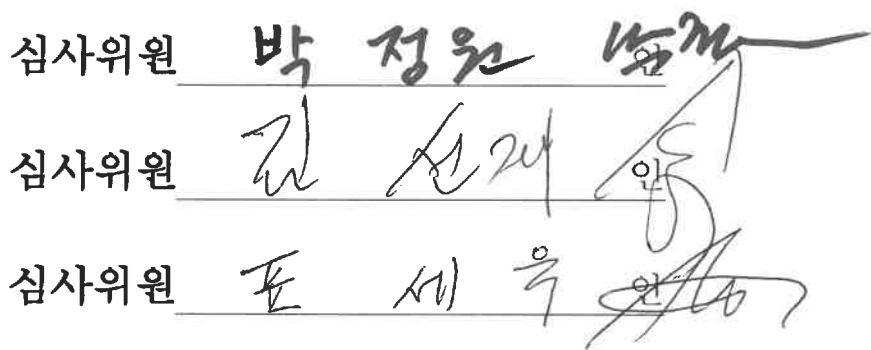 심사위원 박 정원 인
심사위원 김 선재 인
심사위원 표 세 욱 인